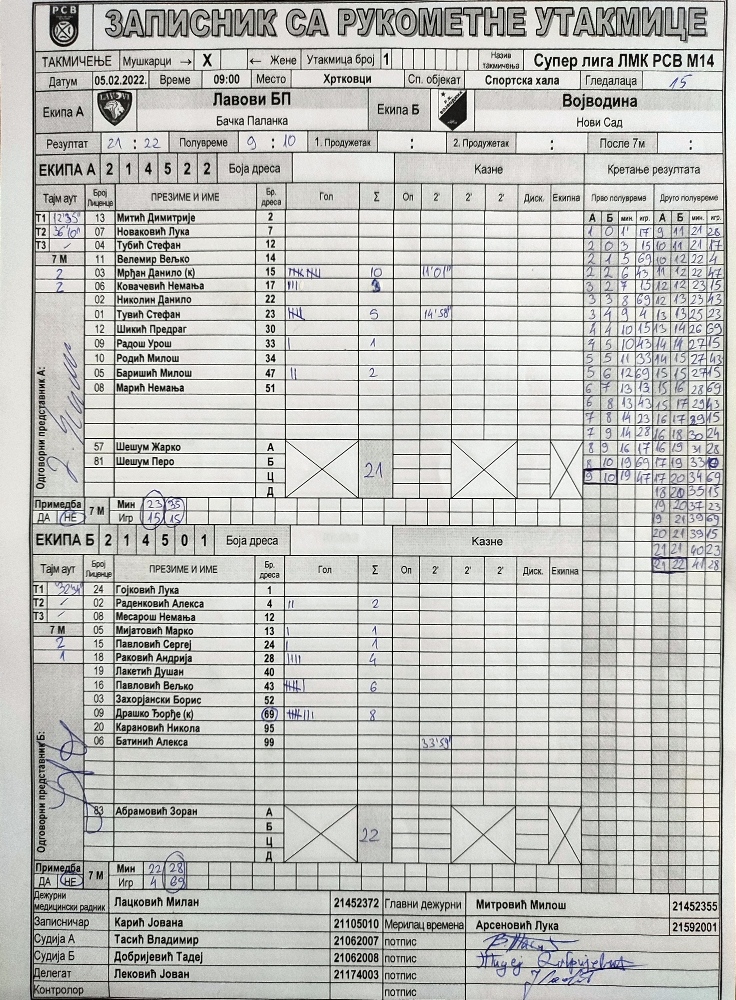 РСВ
ЗАПИСНИК СА РУКОМЕТНЕ УТАКМИЦЕ
ТАКМИЧЕЊЕ Мушкарци → X ← Жене Утакмица број 1 Назив такмичења Супер лига ЛМК РСВ М14
Датум 05.02.2022. Време 09:00 Место Хртковци Сп. објекат Спортска хала Гледалаца 15
Екипа А Лавови БП Екипа Б Војводина
Бачка Паланка Нови Сад
Резултат 21 : 22 Полувреме 9 : 10 1. Продужетак : 2. Продужетак : После 7м :
ЕКИПА А 2 1 4 5 2 2 Боја дреса Казне Кретање резултата
Тајм аут Број Лиценце ПРЕЗИМЕ И ИМЕ Бр. дреса Гол Σ Оп 2' 2' 2' Диск. Екипна Прво полувреме Друго полувреме
А Б мин. игр. А Б мин. игр.
Т1 12'35" 13 Митић Димитрије 2
Т2 36'10" 07 Новаковић Лука 7 1 0 1' 17 9 11 21 28
Т3 / 04 Тубић Стефан 12 2 0 3 15 10 11 21 17
7 М 11 Велемир Вељко 14 2 1 5 69 10 12 22 4
2 03 Мрђан Данило (к) 15 10 11'01" 2 2 6 43 11 12 22 47
2 06 Ковачевић Немања 17 III 3 3 2 7 15 12 12 23 15
02 Николин Данило 22 3 3 8 69 12 13 23 43
01 Тувић Стефан 23 5 14'58" 3 4 9 4 13 13 25 23
12 Шикић Предраг 30 4 4 10 15 13 14 26 69
09 Радош Урош 33 I 1 4 5 10 43 14 14 27 15
10 Родић Милош 34 5 5 11 33 14 15 27 43
05 Баришић Милош 47 II 2 5 6 12 69 15 15 27 15
08 Марић Немања 51 6 7 13 13 15 16 28 69
6 8 13 43 15 17 29 43
7 8 14 23 16 17 29 15
7 9 14 28 16 18 30 24
57 Шешум Жарко А 8 9 16 17 16 19 31 28
81 Шешум Перо Б 21 8 10 19 69 17 19 33
Ц 9 10 19 47 17 20 34 69
Д 18 20 35 15
Одговорни представник А:
Примедба 7 М Мин 23 35 19 20 37 23
ДА НЕ Игр 15 15 19 21 39 69
ЕКИПА Б 2 1 4 5 0 1 Боја дреса Казне 20 21 39 15
21 21 40 23
21 22 41 28
Тајм аут Број Лиценце ПРЕЗИМЕ И ИМЕ Бр. дреса Гол Σ Оп 2' 2' 2' Диск. Екипна
Т1 32'34" 24 Гојковић Лука 1
Т2 / 02 Раденковић Алекса 4 II 2
Т3 / 08 Месарош Немања 12
7 М 05 Мијатовић Марко 13 I 1
2 15 Павловић Сергеј 24 I 1
1 18 Раковић Андрија 28 IIII 4
19 Лакетић Душан 40
16 Павловић Вељко 43 6
03 Захорјански Борис 52
09 Драшко Ђорђе (к) 69 8
20 Карановић Никола 95
06 Батинић Алекса 99 33'59"
Одговорни представник Б:
83 Абрамовић Зоран А
Б 22
Ц
Д
Примедба 7 М Мин 22 28
ДА НЕ Игр 4 69
Дежурни медицински радник Лацковић Милан 21452372 Главни дежурни Митровић Милош 21452355
Записничар Карић Јована 21105010 Мерилац времена Арсеновић Лука 21592001
Судија А Тасић Владимир 21062007 потпис
Судија Б Добријевић Тадеј 21062008 потпис
Делегат Лековић Јован 21174003 потпис
Контролор потпис